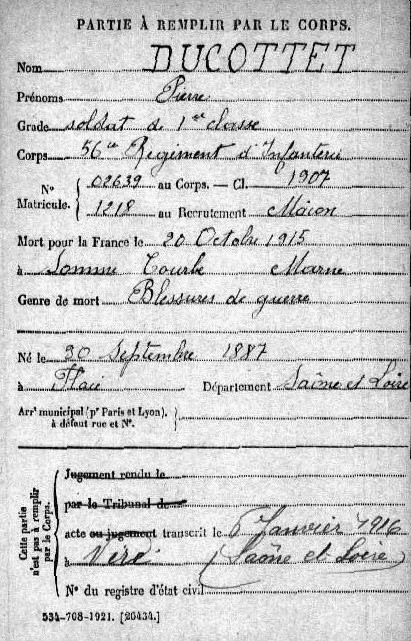 PARTIE À REMPLIR PAR LE CORPS.
Nom DUCOTTET
Prénoms Pierre
Grade soldat de 1re classe
Corps 56e Régiment d'Infanterie
N° Matricule. { 02639 au Corps. — Cl. 1907
1218 au Recrutement Mâcon
Mort pour la France le 20 Octobre 1915
à Somme Tourbe Marne
Genre de mort Blessures de guerre
Né le 30 Septembre 1887
à Flacé Département Saône et Loire
Arrt municipal (pr Paris et Lyon), à défaut rue et N°.
Cette partie n'est pas à remplir par le Corps.
Jugement rendu le
par le Tribunal de
acte ou jugement transcrit le 6 Janvier 1916
à (Saône et Loire)
N° du registre d'état civil
534-708-1921. [26434.]